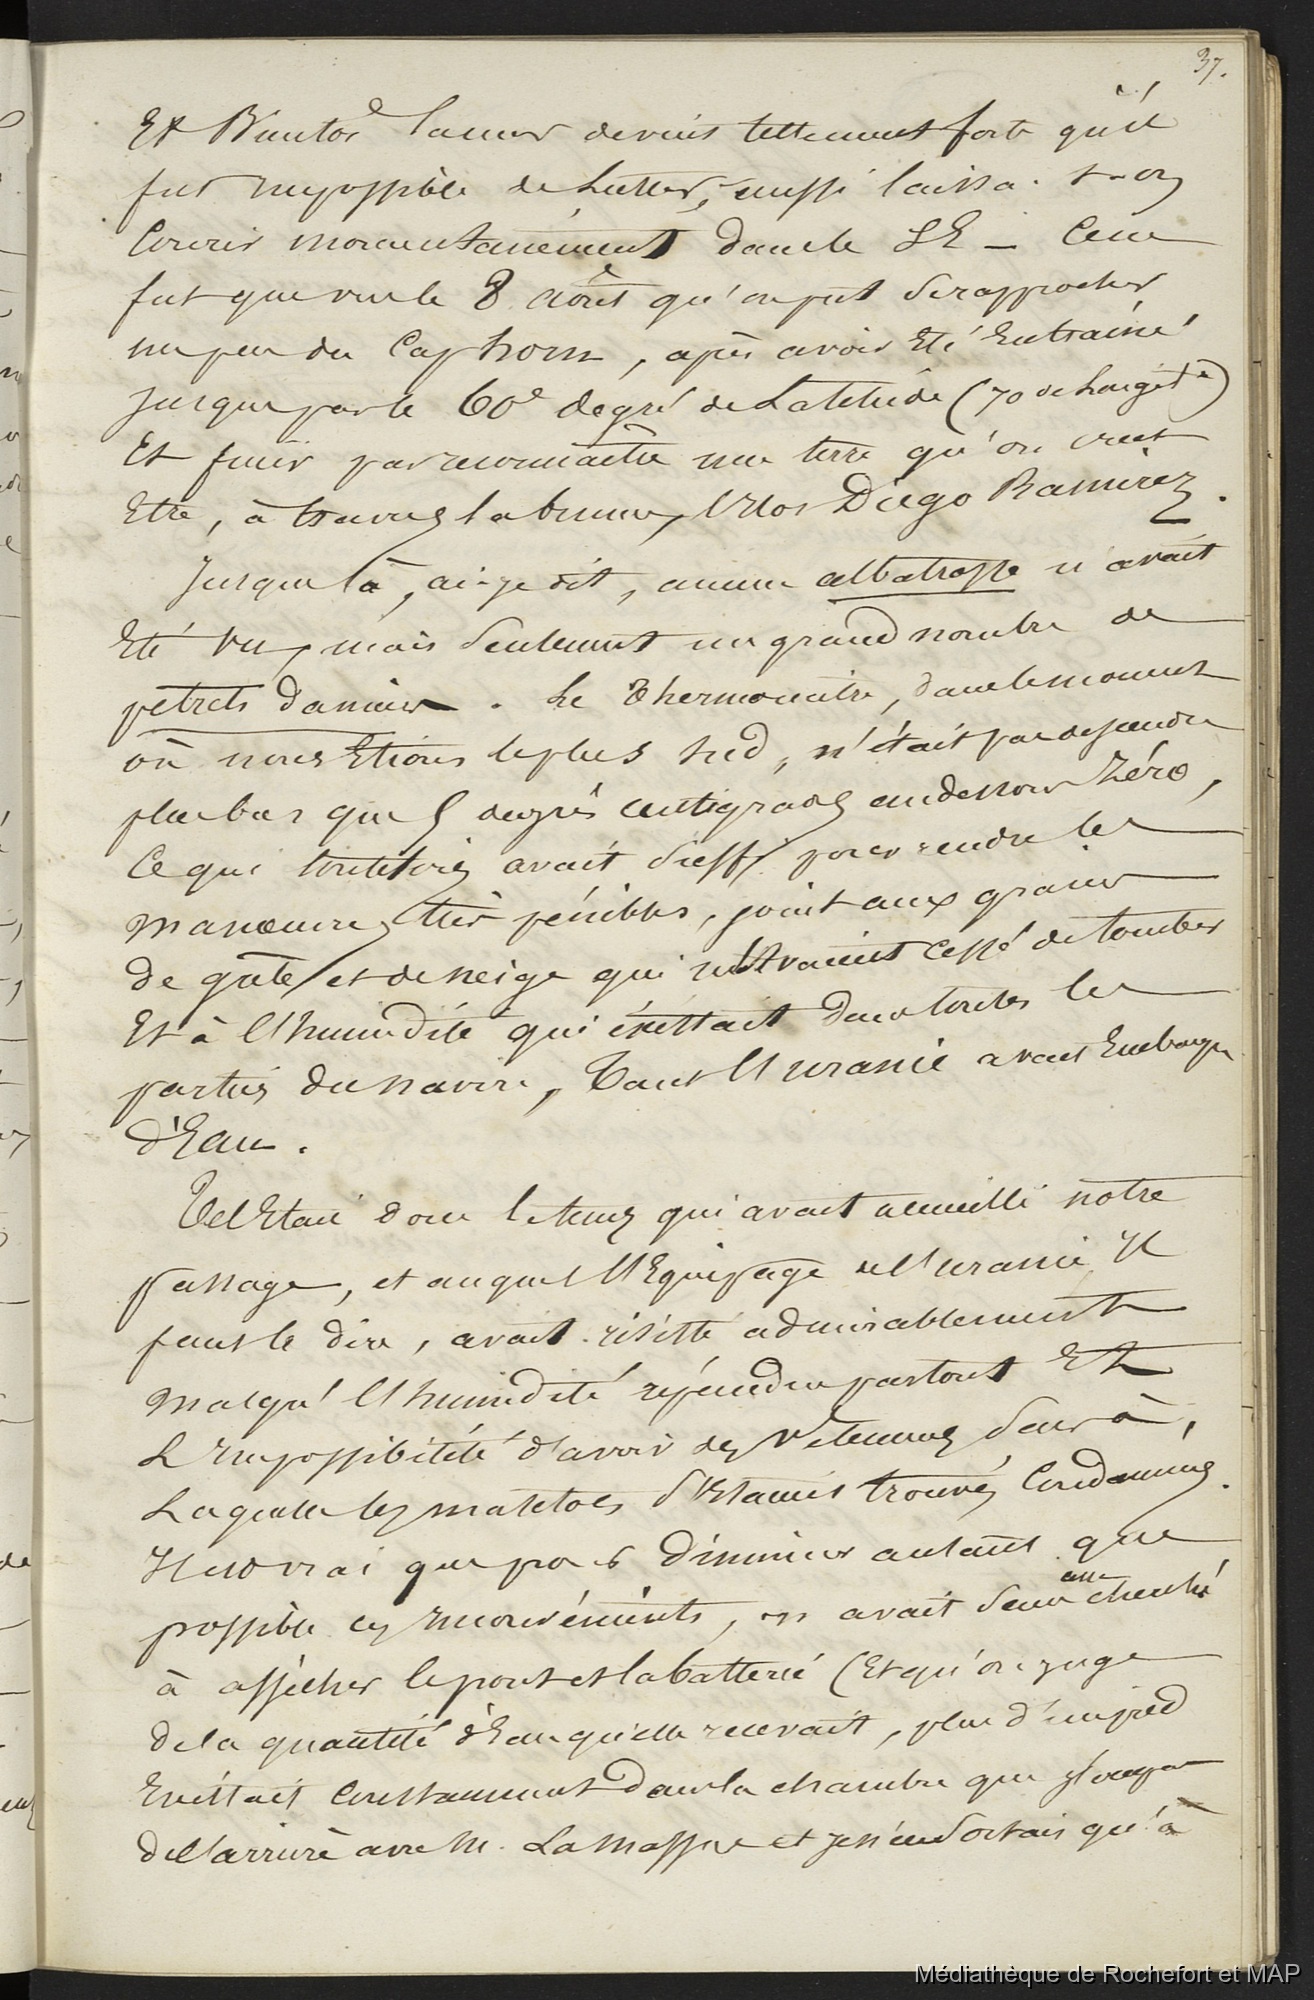 37.
Et Bientôt la mer devint tellement forte qu'il
fut impossible de lutter, aussi laissa-t-on
Courir momentanément dans le SE — Ce ne
fut que vers le 8 Août qu'on put se rapprocher
un peu du Cap horn, après avoir Eté Entrainé
Jusque par le 60e degré de Latitude (70 de Longitde)
Et finir par reconnaitre une terre qu'on crut
Etre, à travers la brume, l'Ilot Diégo Ramirez.
Jusque là, ai-je dit, aucun albatrosse n'avait
Eté vu, mais seulement un grand nombre de
pétrels damier. Le Thermomètre, dans le moment
où nous Etions le plus sud, n'était pas descendu
plus bas que 5 degrés centigrades au dessous Zéro,
Ce qui toutefois avait suffi pour rendre les
manœuvres très pénibles, joint aux grains
de grêle et de neige qui n'avaient cessé de tomber
Et à l'humidité qui éxistait dans toutes les
parties du navire, Tant l'Uranie avait Embarqué
d'Eau.
Tel Etait donc le tems qui avait accueilli notre
passage, et auquel l'Equipage de l'Uranie, Il
faut le dire, avait résisté admirablement
malgré l'humidité répandue partout Et
L'Impossibilité d'avoir des Vêtemens secs à,
Laquelle les matelots s'Etaient trouvés Condamnés.
Il est vrai que pour diminuer autant que
possible ces Inconvénients, on avait sans cesse cherché
à assécher le pont et la batterie (Et qu'on juge
de la quantité d'Eau qu'elle recevait, plus d'un pied
Existait Constamment dans la chambre que j'occupais
de l'arrière avec M. La Mosse et je n'en sortais qu'à
Médiathèque de Rochefort et MAP